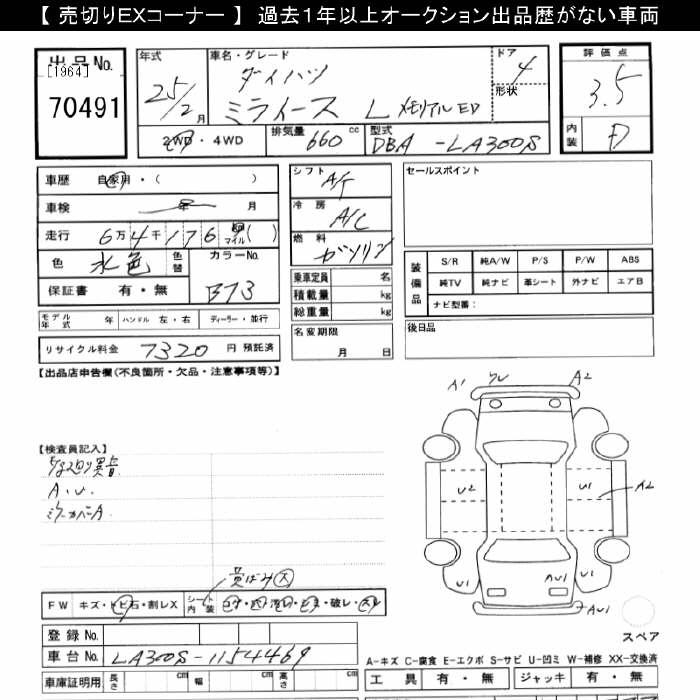 【 売切りEXコーナー 】 過去1年以上オークション出品歴がない車両
出品No.
[1964]
70491
年式
25/2月
車名・グレード
ダイハツ
ミライース L メモリアルED
ドア
4
形状
評価点
3.5
内装
D
2WD・4WD
排気量
660 cc
型式
DBA-LA300S
車歴 自家用・( )
車検 年 月
走行 6万4千176 マイル( )
色 水色 色替
カラーNo.
B73
保証書 有・無
シフト A/T
冷房 A/C
燃料 ガソリン
乗車定員 名
積載量 kg
総重量 kg
名変期限
月 日
セールスポイント
装備品
S/R 純A/W P/S P/W ABS
純TV 純ナビ 革シート 外ナビ エアB
ナビ型番：
後日品
モデル年式 年 ハンドル 左・右 ディーラー・並行
リサイクル料金 7320 円 預託済
【出品店申告欄(不良箇所・欠品・注意事項等)】
【検査員記入】
A.U.
ミラーカバーA
A1 A2
U2 U1 A2
U1 AU1 U1
AU1
スペア
黄ばみ 大
FW キズ・トビ石・割レX
シート内装
破レ
登録No.
車台No. LA300S-1154469
車庫証明用 長さ cm 幅 cm 高さ cm
A-キズ C-腐食 E-エクボ S-サビ U-凹ミ W-補修 XX-交換済
工具 有・無 ジャッキ 有・無